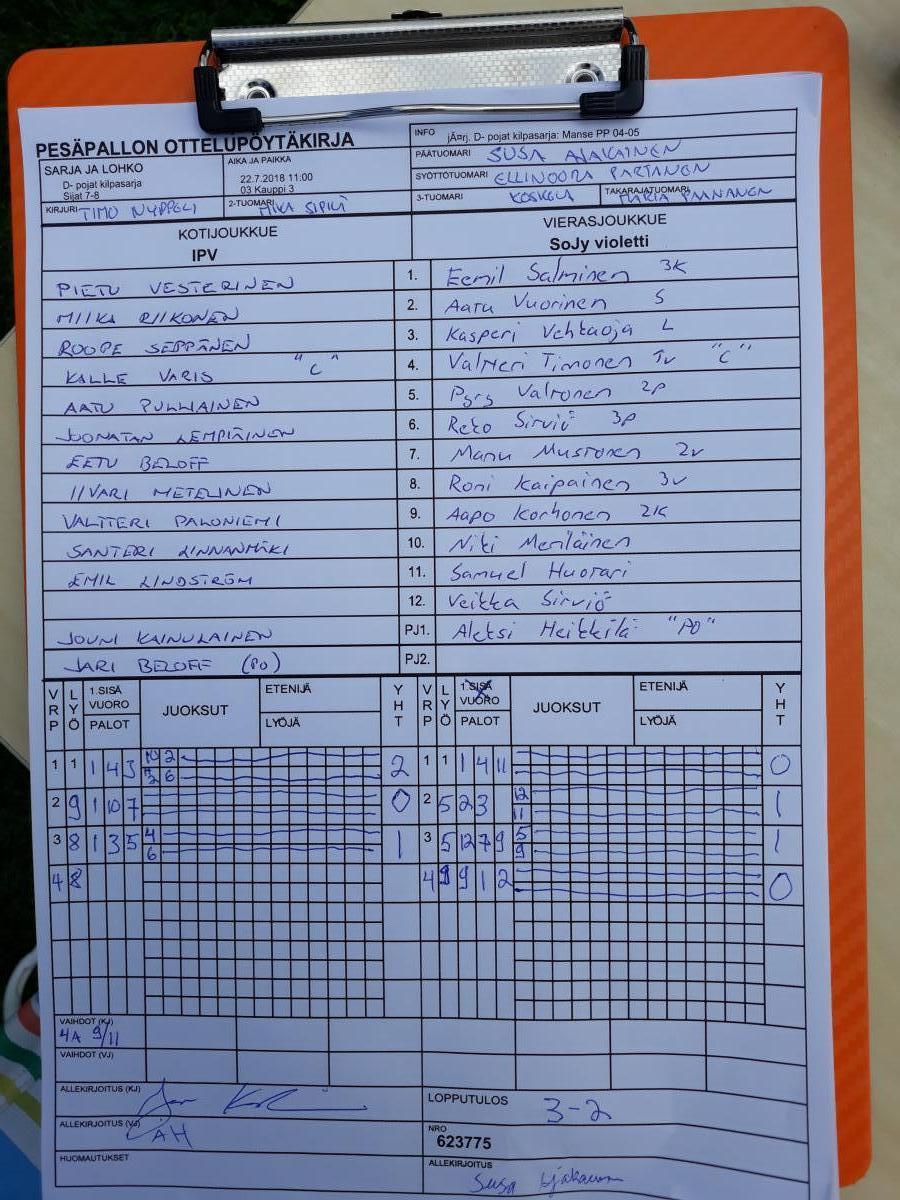 PESÄPALLON OTTELUPÖYTÄKIRJA
INFO jÃ¤rj. D- pojat kilpasarja: Manse PP 04-05
SARJA JA LOHKO
D- pojat kilpasarja
Sijat 7-8
AIKA JA PAIKKA
22.7.2018 11:00
03 Kauppi 3
PÄÄTUOMARI SUSA AJAKAINEN
SYÖTTÖTUOMARI ELLINOORA PARTANEN
KIRJURI TIMO NYPPELI 2-TUOMARI MIKA SIPILÄ 3-TUOMARI KOSKELA TAKARAJATUOMARI MARIA PAANANEN
KOTIJOUKKUE VIERASJOUKKUE
IPV SoJy violetti
PIETU VESTERINEN 1. Eemil Salminen 3K
MIIKA RIIKONEN 2. Aatu Vuorinen S
ROOPE SEPPÄNEN 3. Kasperi Vehtaoja L
KALLE VARIS "C" 4. Valtteri Timonen 1v "C"
AATU PULLIAINEN 5. Pyry Valtonen 2p
JOONATAN LEMPIÄINEN 6. Reko Sirviö 3p
EETU BELOFF 7. Manu Mustonen 2v
IIVARI METELINEN 8. Roni Kaipainen 3v
VALTTERI PALONIEMI 9. Aapo Korhonen 2K
SANTERI LINNANMÄKI 10. Niki Meriläinen
EMIL LINDSTRÖM 11. Samuel Huotari
12. Veikka Sirviö
JOUNI KAINULAINEN PJ1. Aleksi Heikkilä "PO"
JARI BELOFF (PO) PJ2.
VRP LYÖ 1.SISÄ VUORO PALOT JUOKSUT ETENIJÄ LYÖJÄ YHT VRP LYÖ 1.SISÄ VUORO PALOT JUOKSUT ETENIJÄ LYÖJÄ YHT
1 1 1 4 3 10 2 2 6 2 1 1 1 4 11 0
2 9 1 10 7 0 2 5 2 3 12 11 1
3 8 1 3 5 4 6 1 3 5 12 7 9 5 9 1
4 8 4 9 9 1 2 0
VAIHDOT (KJ)
4A 9/11
VAIHDOT (VJ)
ALLEKIRJOITUS (KJ)
LOPPUTULOS 3-2
ALLEKIRJOITUS (VJ) AH
NRO
623775
HUOMAUTUKSET
ALLEKIRJOITUS Susa Ajakainen